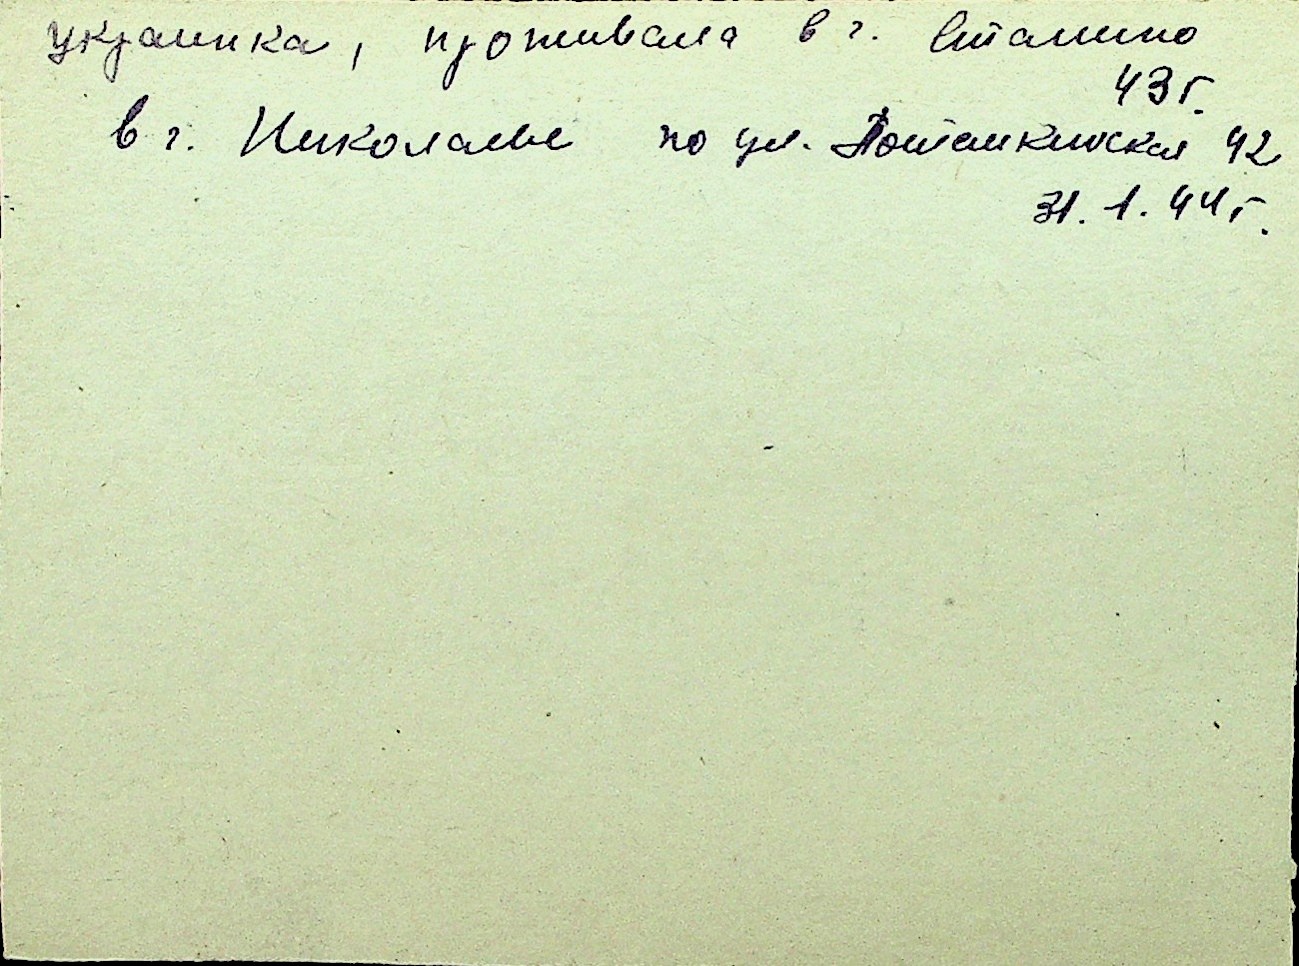 украинка, проживала в г. Сталино
43 г.
в г. Николаеве по ул. Потемкинская 42
31. 1. 44 г.